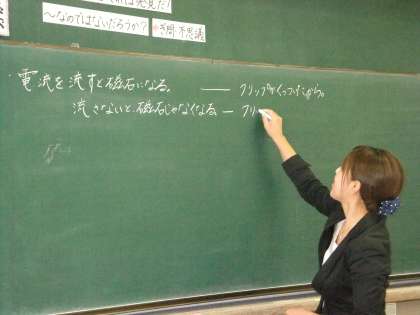 これは発見だ!
〜なのではないだろうか?
※疑問・不思議
・電流を流すと磁石になる。 — クリップがくっつくから。
流さないと磁石じゃなくなる — クリ